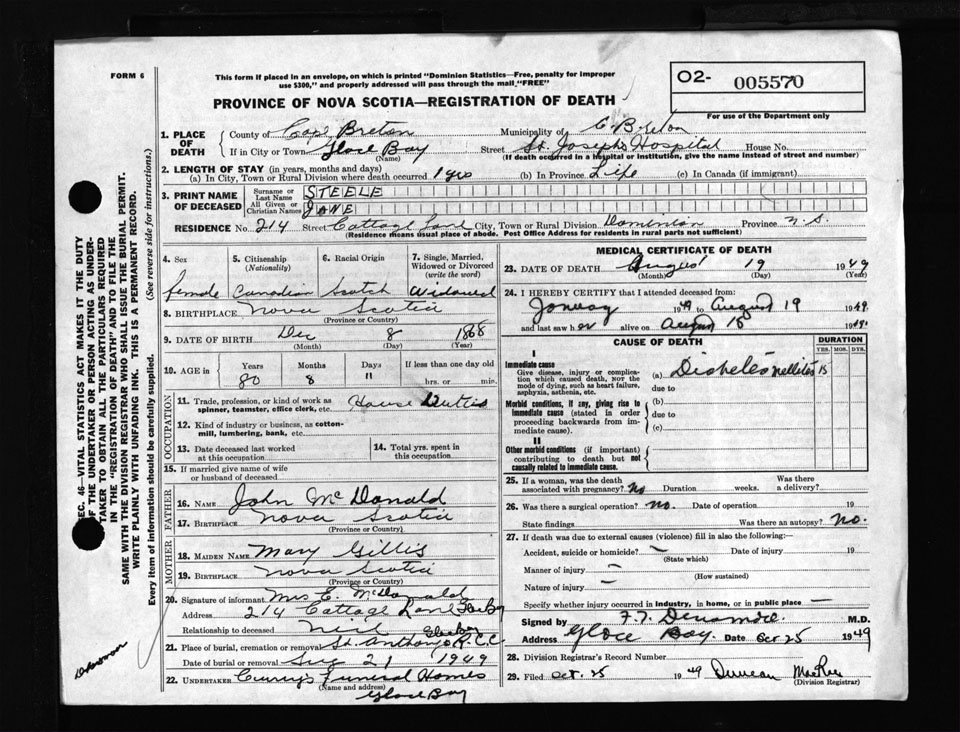 FORM 6
This form if placed in an envelope, on which is printed "Dominion Statistics—Free, penalty for improper
use $300," and properly addressed will pass through the mail "FREE"
O2- 005570
For use of the Department only
PROVINCE OF NOVA SCOTIA—REGISTRATION OF DEATH
1. PLACE OF DEATH
County of Cape Breton Municipality of C. Breton
If in City or Town Glace Bay Street St. Josephs Hospital House No.
(Name) (If death occurred in a hospital or institution, give the name instead of street and number)
2. LENGTH OF STAY (in years, months and days)
(a) In City, Town or Rural Division where death occurred 1 yrs (b) In Province Life (c) In Canada (if immigrant)
3. PRINT NAME OF DECEASED
Surname or Last Name STEELE
All Given or Christian Names JANE
RESIDENCE No. 214 Street Cottage Land City, Town or Rural Division Dominion Province N.S.
(Residence means usual place of abode. Post Office Address for residents in rural parts not sufficient)
4. Sex 5. Citizenship (Nationality) 6. Racial Origin 7. Single, Married, Widowed or Divorced (write the word)
female Canadian Scotch Widowed
8. BIRTHPLACE Nova Scotia
(Province or Country)
9. DATE OF BIRTH Dec 8 1868
(Month) (Day) (Year)
10. AGE in Years Months Days If less than one day old
80 8 11 hrs. or min.
OCCUPATION
11. Trade, profession, or kind of work as spinner, teamster, office clerk, etc. House Duties
12. Kind of industry or business, as cotton-mill, lumbering, bank, etc.
13. Date deceased last worked at this occupation
14. Total yrs. spent in this occupation
15. If married give name of wife or husband of deceased
FATHER
16. Name John McDonald
17. Birthplace Nova Scotia
(Province or Country)
MOTHER
18. Maiden Name Mary Gillis
19. Birthplace Nova Scotia
(Province or Country)
20. Signature of informant Mrs E. McDonald
Address 214 Cottage Lane Glace Bay
Relationship to deceased
21. Place of burial, cremation or removal St. Anthonys R.C.C. Glace Bay
Date of burial or removal Aug 21 1949
22. UNDERTAKER Curry's Funeral Homes
(Name and address)
Glace Bay
MEDICAL CERTIFICATE OF DEATH
23. DATE OF DEATH August 19 1949
(Month) (Day) (Year)
24. I HEREBY CERTIFY that I attended deceased from:
January 1949 to August 19 1949
and last saw her alive on August 18 1949
CAUSE OF DEATH
DURATION
YRS. MOS. DYS.
I
Immediate cause
Give disease, injury or complication which caused death, NOT the mode of dying, such as heart failure, asphyxia, asthenia, etc.
(a) Diabetes mellitis 15
due to
Morbid conditions, if any, giving rise to immediate cause (stated in order proceeding backwards from immediate cause).
(b)
due to
(c)
II
Other morbid conditions (if important) contributing to death but not causally related to immediate cause.
25. If a woman, was the death associated with pregnancy? No Duration weeks. Was there a delivery?
26. Was there a surgical operation? no. Date of operation 19
State findings Was there an autopsy? No.
27. If death was due to external causes (violence) fill in also the following:—
Accident, suicide or homicide? — Date of injury 19
(State which)
Manner of injury —
(How sustained)
Nature of injury —
Specify whether injury occurred in industry, in home, or in public place —
Signed by M.D.
Address Glace Bay Date Oct 25 1949
28. Division Registrar's Record Number
29. Filed Oct. 25 1949 Duncan MacRae
(Division Registrar)
SEC. 46—VITAL STATISTICS ACT MAKES IT THE DUTY
OF THE UNDERTAKER OR PERSON ACTING AS UNDERTAKER TO OBTAIN ALL THE PARTICULARS REQUIRED
IN THE "REGISTRATION OF DEATH" AND TO FILE THE
SAME WITH THE DIVISION REGISTRAR WHO SHALL ISSUE THE BURIAL PERMIT.
WRITE PLAINLY WITH UNFADING INK. THIS IS A PERMANENT RECORD.
Every item of information should be carefully supplied. (See reverse side for instructions.)